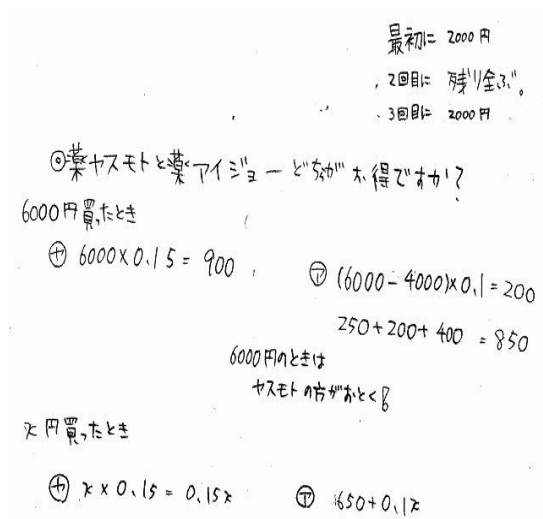 最初に 2000円
・2回目に 残り全ぶ。
・3回目に 2000円
◎薬ヤスモトと薬アイジョーどちらがお得ですか?
6000円買ったとき
㋳ 6000×0.15=900
㋐ (6000-4000)×0.1=200
250+200+400=850
6000円のときは
ヤスモトの方がおとく!
x円買ったとき
㋳ x×0.15=0.15x
㋐ 650+0.1x